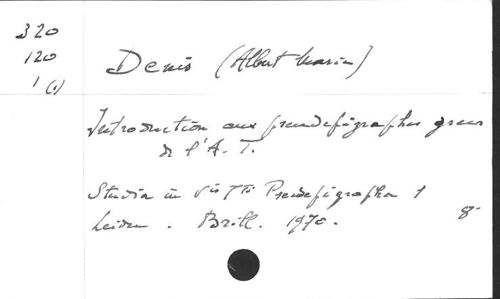 320
120
1 (1)
Denis (Albert Marie)
Introduction aux pseudépigraphes grecs
de l'A. T.
Studia in Vis Tti Pseudepigrapha 1
Leiden. Brill. 1970. 8°